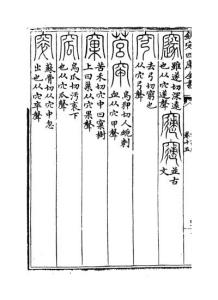 欽定四庫全書
卷十五
雖遂切深遠
也从穴遂聲
並古
文
去弓切窮也
从穴弓聲
烏狎切
从穴甲聲
苦禾切穴中曰窠樹
上曰巢从穴果聲
烏瓜切污衺下
也从穴瓜聲
蘇骨切从穴中忽
出也从穴卒聲